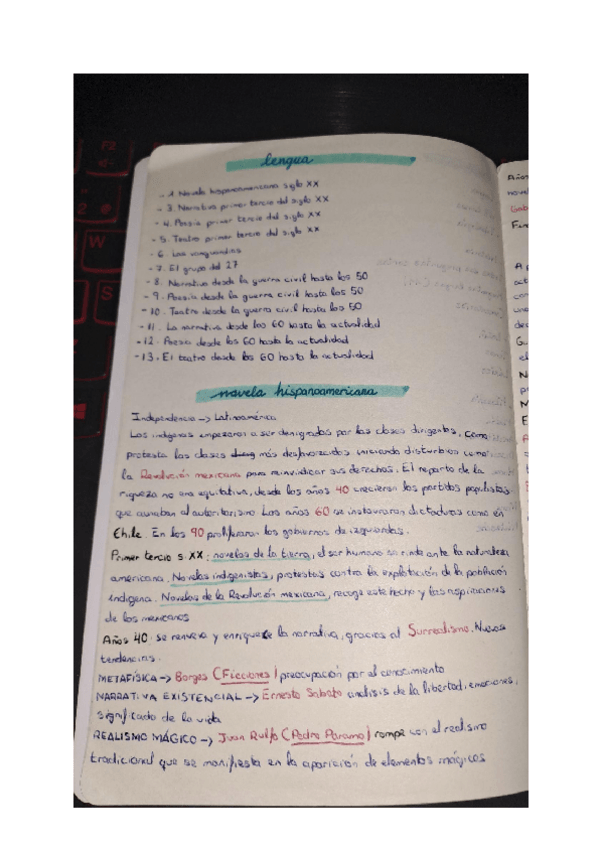 lengua
- 1. Novela hispanoamericana siglo XX
- 3. Narrativa primer tercio del siglo XX
- 4. Poesía primer tercio del siglo XX
- 5. Teatro primer tercio del siglo XX
- 6. Las vanguardias
- 7. El grupo del 27
- 8. Narrativa desde la guerra civil hasta los 50
- 9. Poesía desde la guerra civil hasta los 50
- 10. Teatro desde la guerra civil hasta los 50
- 11. La narrativa desde los 60 hasta la actualidad
- 12. Poesia desde los 60 hasta la actualidad
- 13. El teatro desde los 60 hasta la actualidad
novela hispanoamericana
Independencia -> Latinoamérica
Los indígenas empezaron a ser denigrados por las clases dirigentes, como
protesta las clases más desfavorecidas iniciando disturbios como
la Revolución mexicana para reinvindicar sus derechos. El reparto de la
riqueza no era equitativa, desde los años 40 crecieron los partidos populistas
que aunaban el autoritarismo. Los años 60 se instauraron dictaduras como en
Chile. En los 90 proliferaron los gobiernos de izquierdas.
Primer tercio s. XX: novelas de la tierra, el ser humano se rinde ante la naturaleza
americana. Novelas indigenistas, protestas contra la explotación de la población
indígena. Novelas de la Revolución mexicana, recoge este hecho y las aspiraciones
de los mexicanos
Años 40: se renueva y enriquece la narrativa, gracias al Surrealismo. Nuevas
tendencias.
METAFÍSICA -> Borges (Ficciones) preocupación por el conocimiento
NARRATIVA EXISTENCIAL -> Ernesto Sabato analisis de la libertad, emociones,
significado de la vida
REALISMO MÁGICO -> Juan Rulfo (Pedro Paramo) rompe con el realismo
tradicional que se manifiesta en la aparición de elementos mágicos